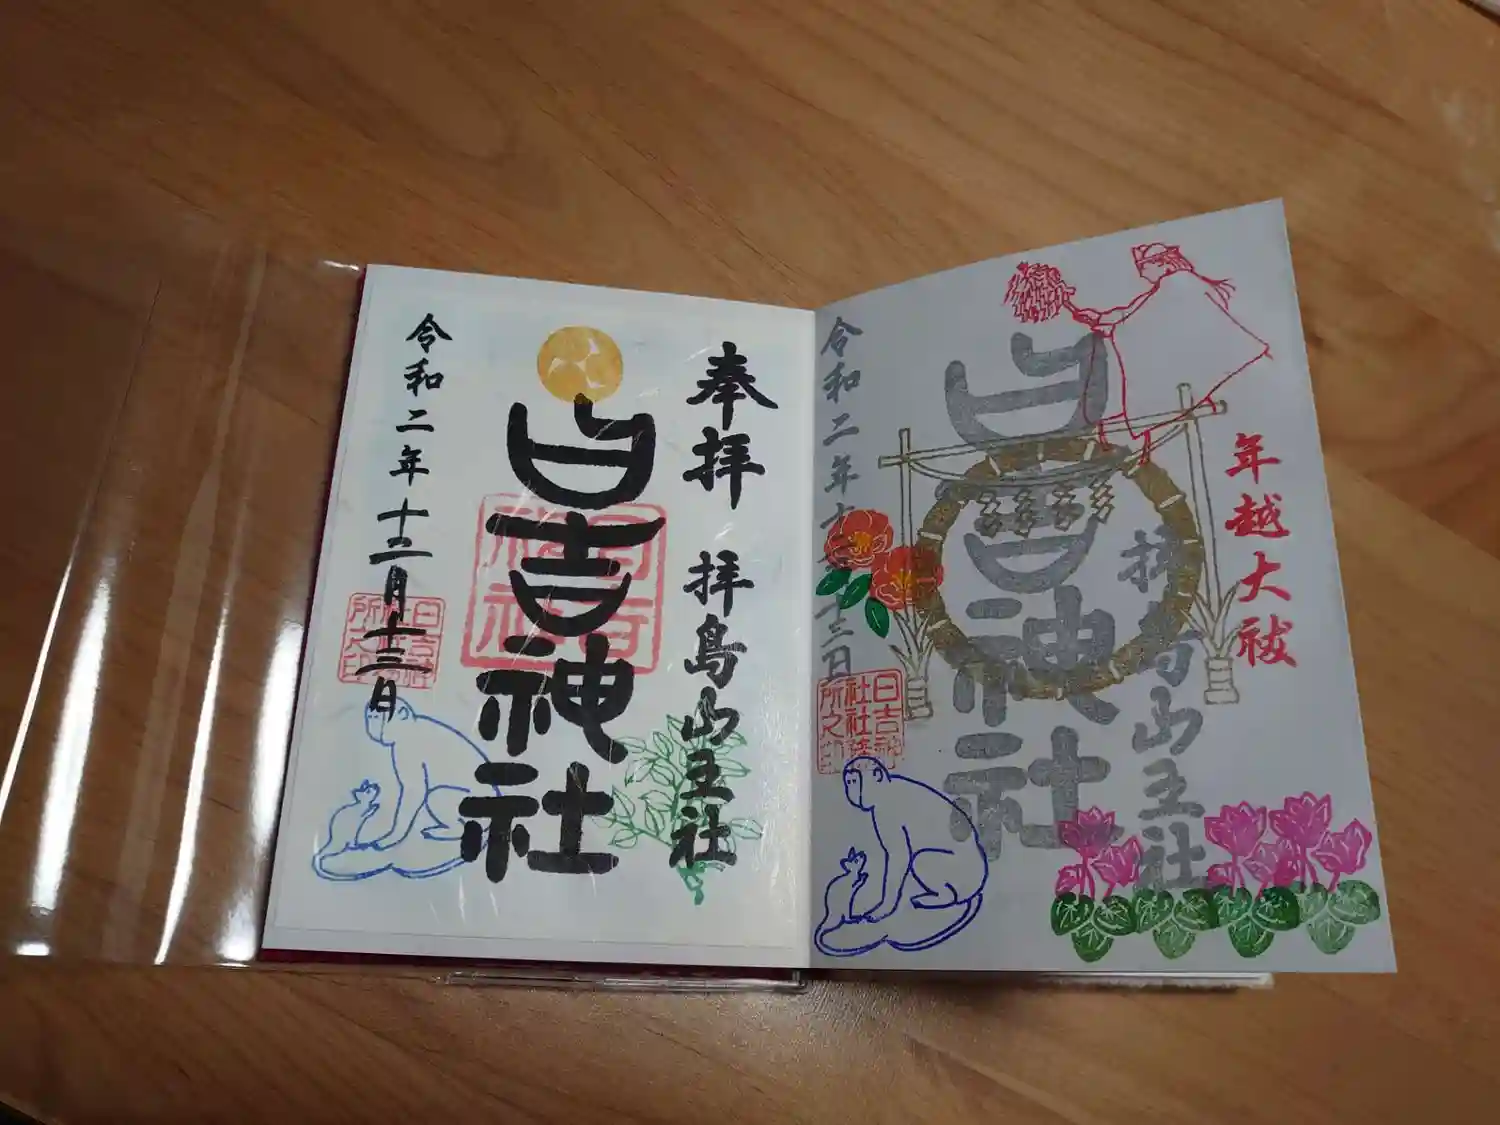 奉拝 拝島山王社
日吉神社
令和二年十二月十三日
日吉神社社務所之印
年越大祓
拝島山王社
日吉神社
令和二年十二月十三日
日吉神社社務所之印